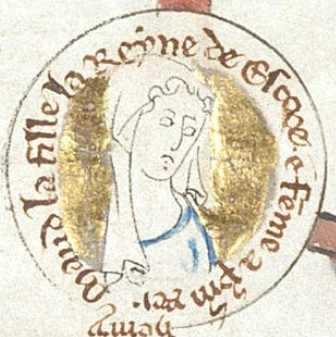 Maud la fille la Reyne de Escoce e feme a
rei
henry